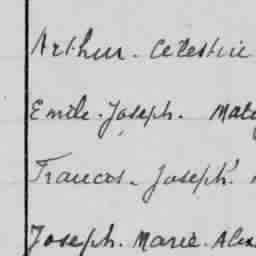 Arthur. Celestin
Emile. Joseph.
Francois. Joseph.
Joseph. Marie. Alex